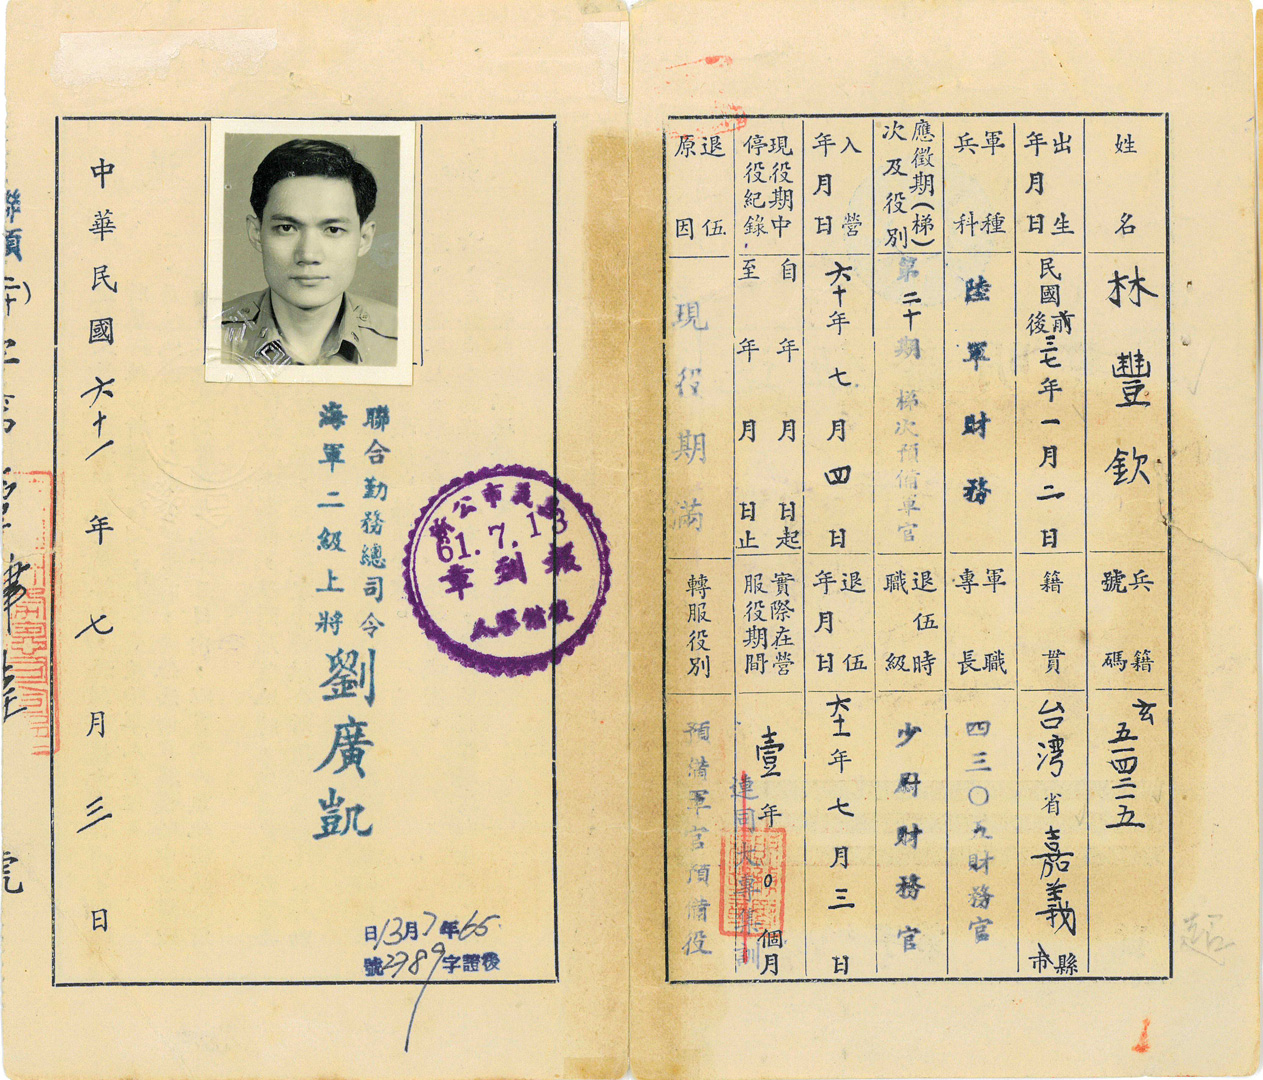 姓名
林豐欽
兵籍號碼
玄五一四二二五
出生年月日
民國前後三七年一月二日
籍貫
台灣省嘉義縣市
軍種兵科
陸軍財務
軍職專長
四三〇五財務官
應徵期(梯)次及役別
第二十期梯次預備軍官
退伍時職級
少尉財務官
入營年月日
六十年七月四日
退伍年月日
六十一年七月三日
現役期中停役紀錄
自年月日起
至年月日止
實際在營服役期間
壹年0個月
連同大專集訓
退伍原因
現役期滿
轉服役別
預備軍官預備役
聯合勤務總司令
海軍二級上將劉廣凱
61.7.13
報到章
後備軍人
65年7月13日
後證字2789號
中華民國六十一年七月三日
號